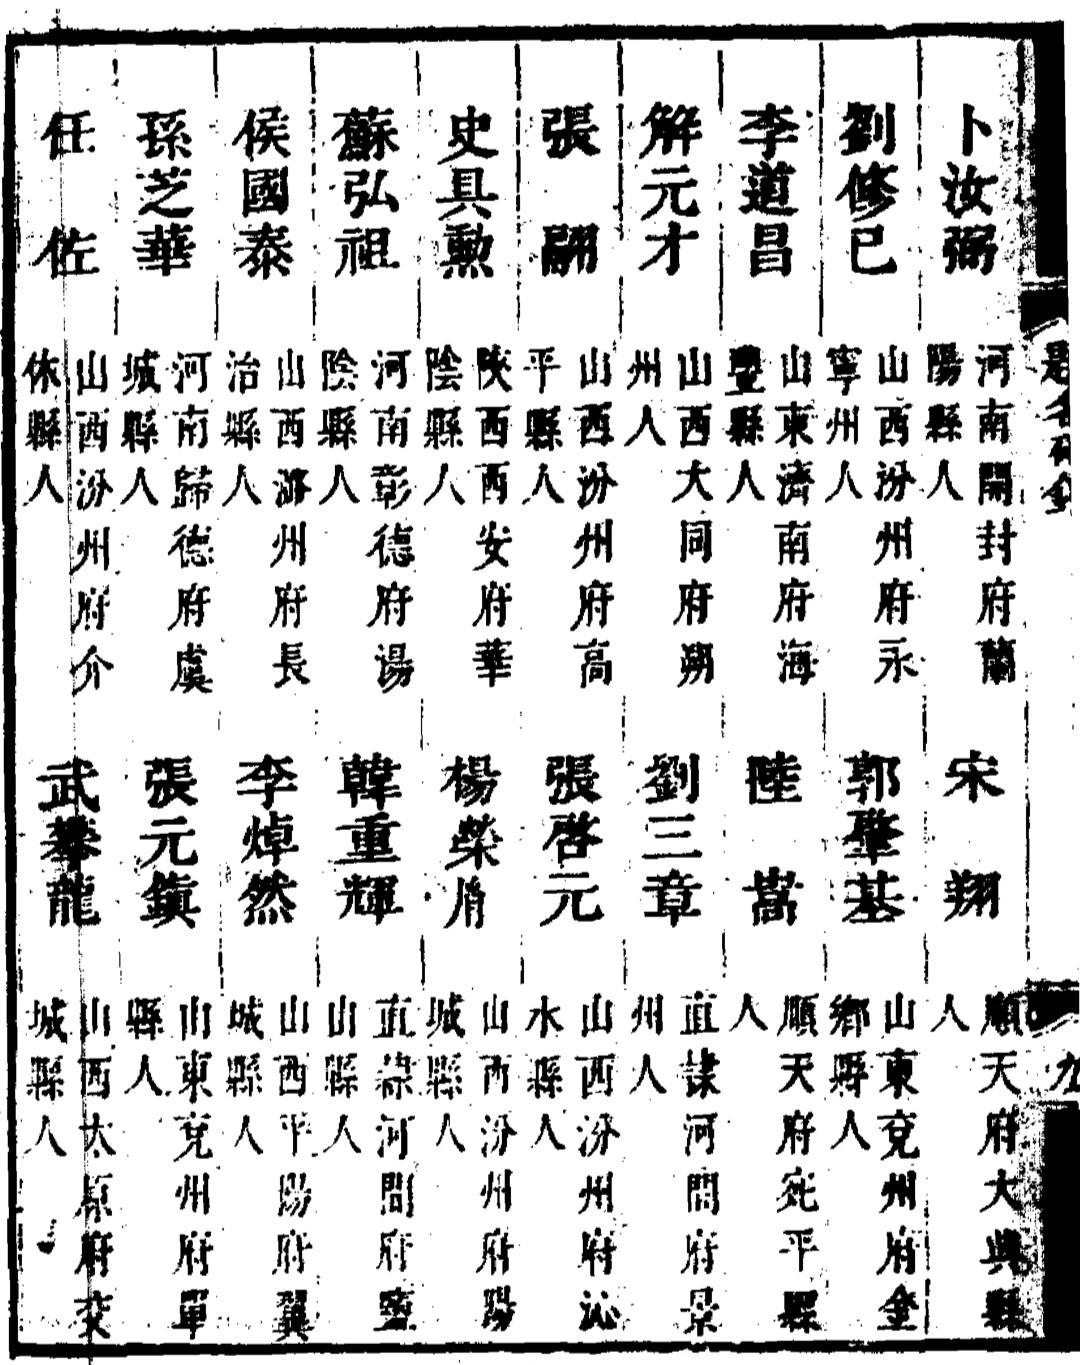 題名碑錄
九
卜汝弼
河南開封府蘭
陽縣人
宋翔
順天府大興縣
人
劉修已
山西汾州府永
寧州人
郭肇基
山東兗州府金
鄉縣人
李道昌
山東濟南府海
豐縣人
陸嵩
順天府宛平縣
人
解元才
山西大同府朔
州人
劉三章
直隸河間府景
州人
張翮
山西汾州府高
平縣人
張啓元
山西汾州府沁
水縣人
史具勲
陜西西安府華
陰縣人
楊榮胤
山西汾州府陽
城縣人
蘇弘祖
河南彰德府湯
陰縣人
韓重輝
直隸河間府鹽
山縣人
侯國泰
山西潞州府長
治縣人
李焯然
山西平陽府翼
城縣人
孫芝華
河南歸德府虞
城縣人
張元鎮
山東兗州府單
縣人
任佐
山西汾州府介
休縣人
武攀龍
山西太原府交
城縣人